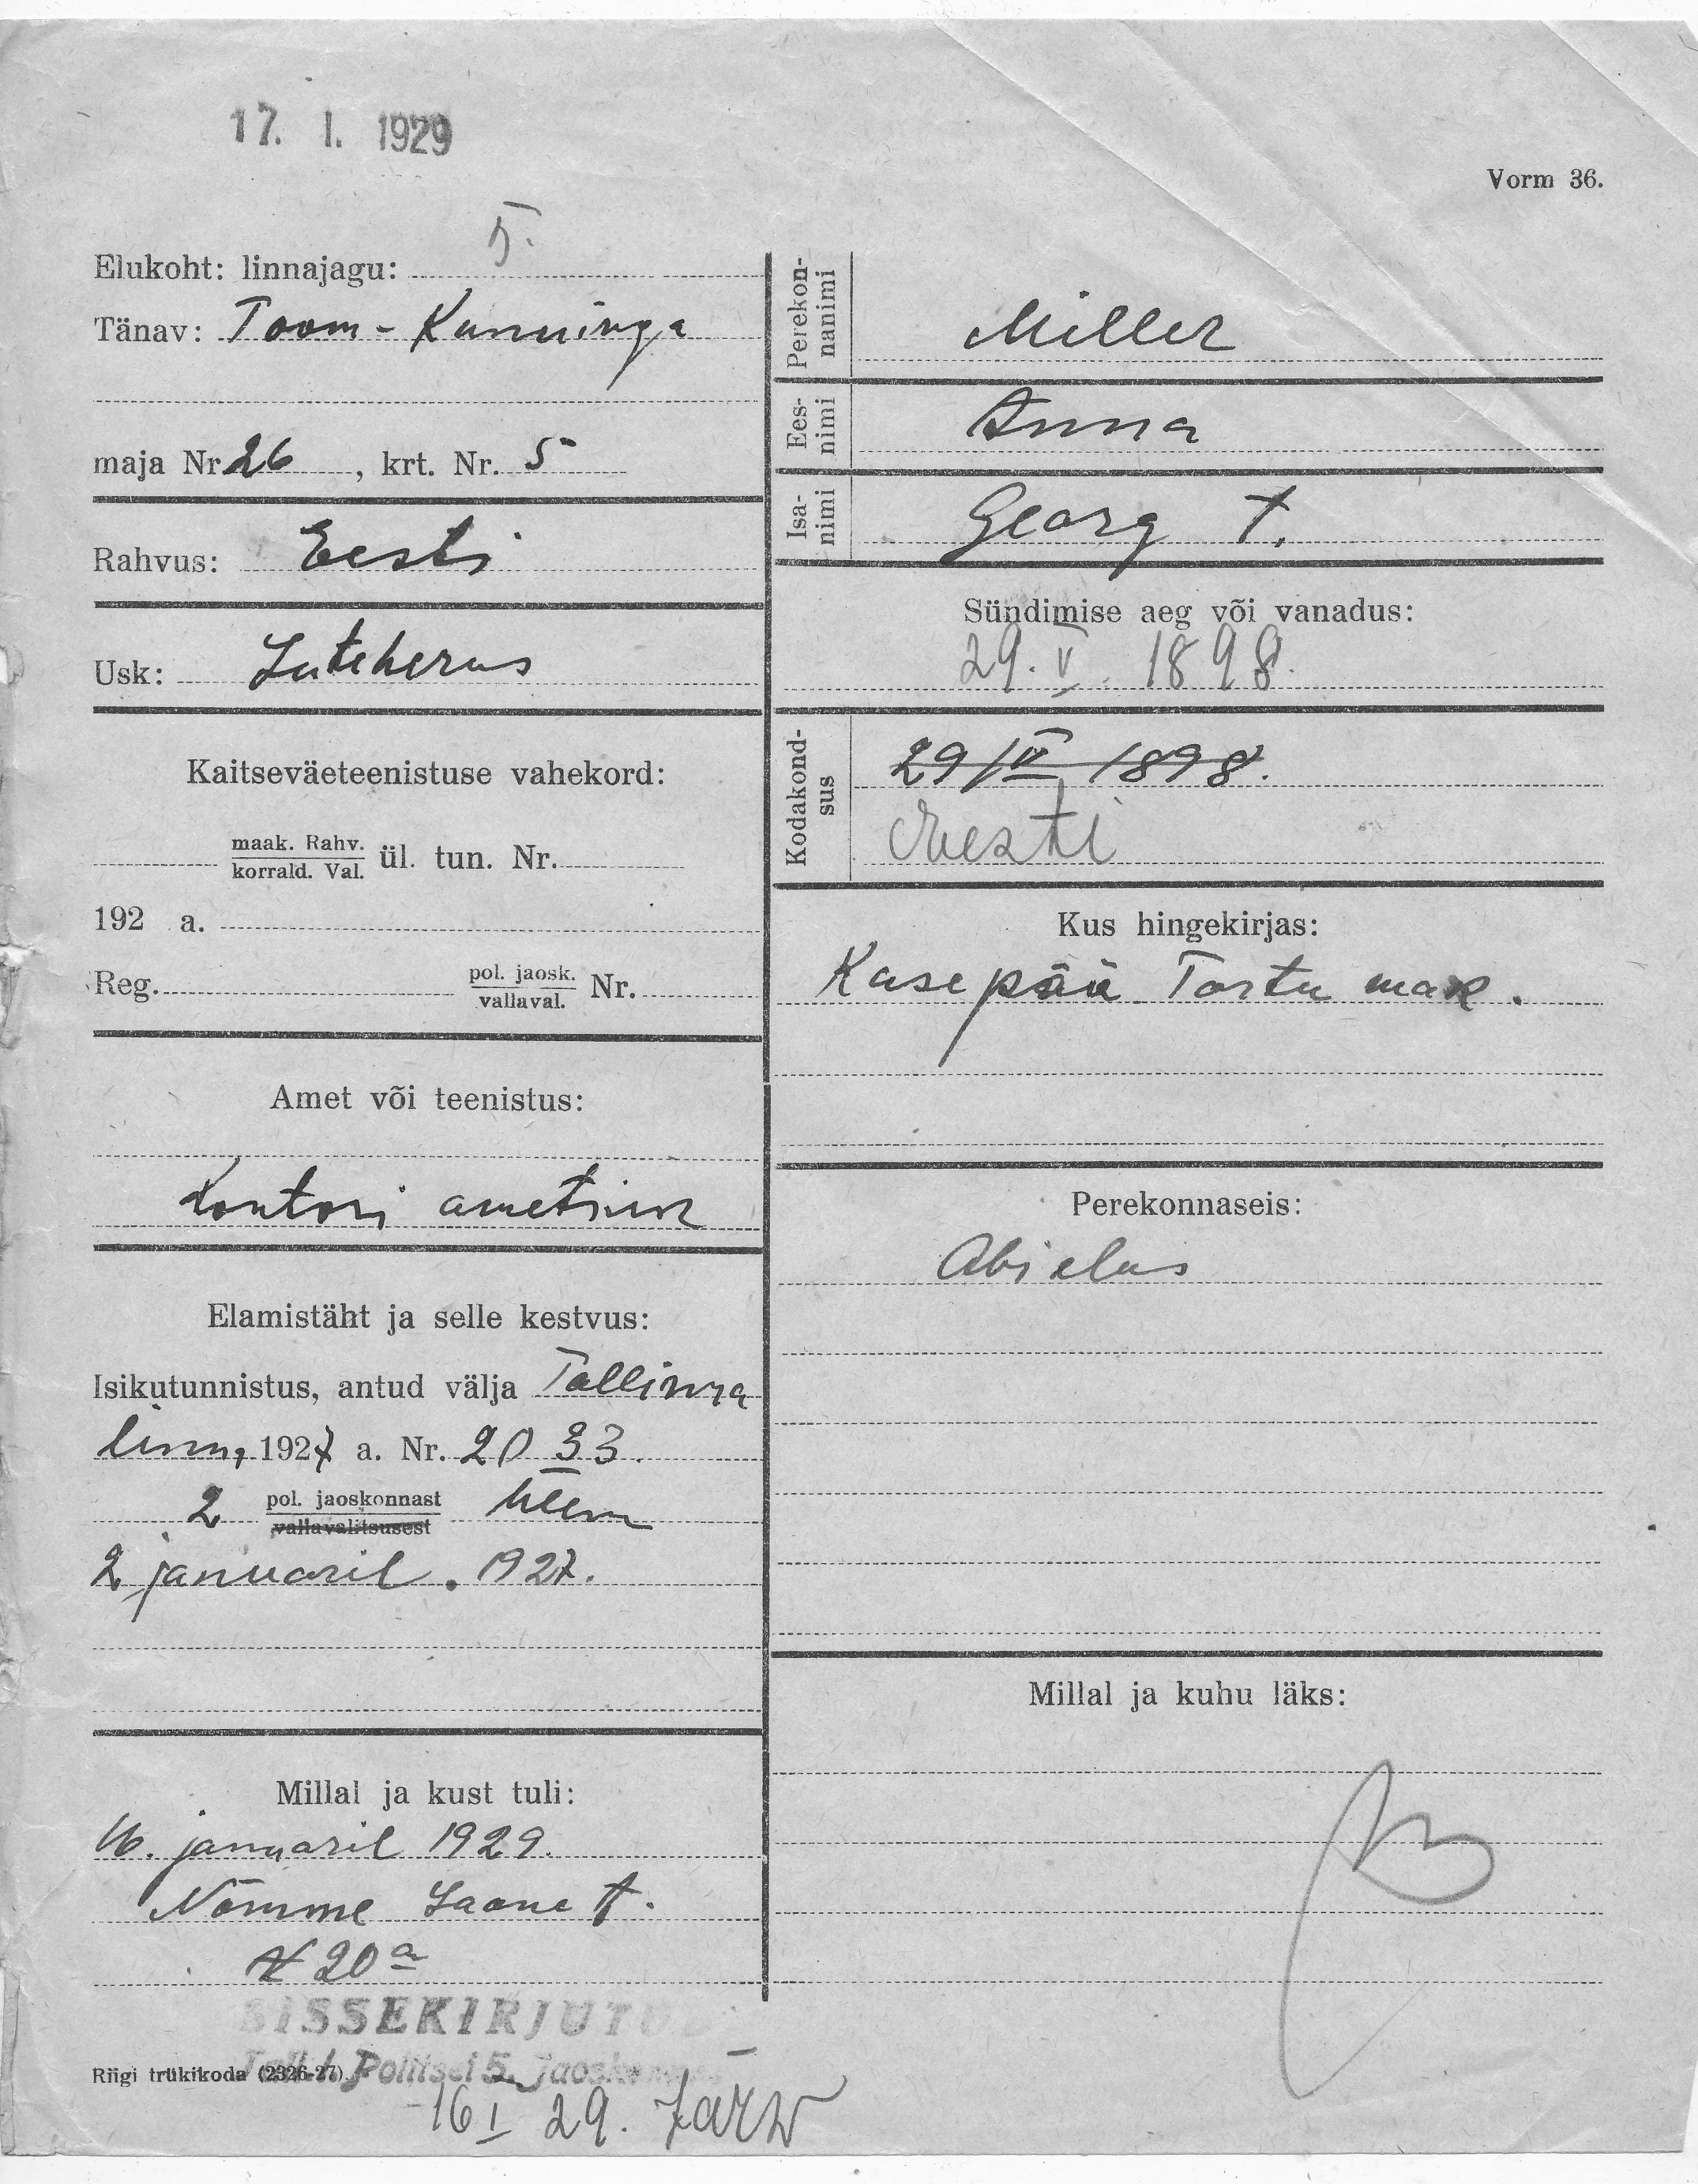 17. I. 1929
Vorm 36.
Elukoht: linnajagu: 5.
Tänav: Toom-Kunninga
maja Nr 26, krt. Nr. 5
Rahvus: Eesti
Usk: Luteherus
Kaitseväeteenistuse vahekord:
maak. Rahv.
korrald. Val. ül. tun. Nr.
192 a.
Reg. pol. jaosk.
vallaval. Nr.
Amet või teenistus:
Kontori ametnik
Elamistäht ja selle kestvus:
Isikutunnistus, antud välja Tallinna
linn, 1927 a. Nr. 2033.
2 pol. jaoskonnast
vallavalitsusest
2 januaril. 1927.
Millal ja kust tuli:
16. januaril 1929.
Nõmme Laane t.
N 20a
SISSEKIRJUTUD
Riigi trükikoda (2326-27)
Tall. l. Politsei 5. Jaoskonnas
16 I 29. Järw
Perekon-
nanimi Miller
Ees-
nimi Anna
Isa-
nimi Georg t.
Sündimise aeg või vanadus:
29. V. 1898.
Kodakond-
sus 29/V 1898.
Eesti
Kus hingekirjas:
Kasepää Tartu mak.
Perekonnaseis:
Abielus
Millal ja kuhu läks: